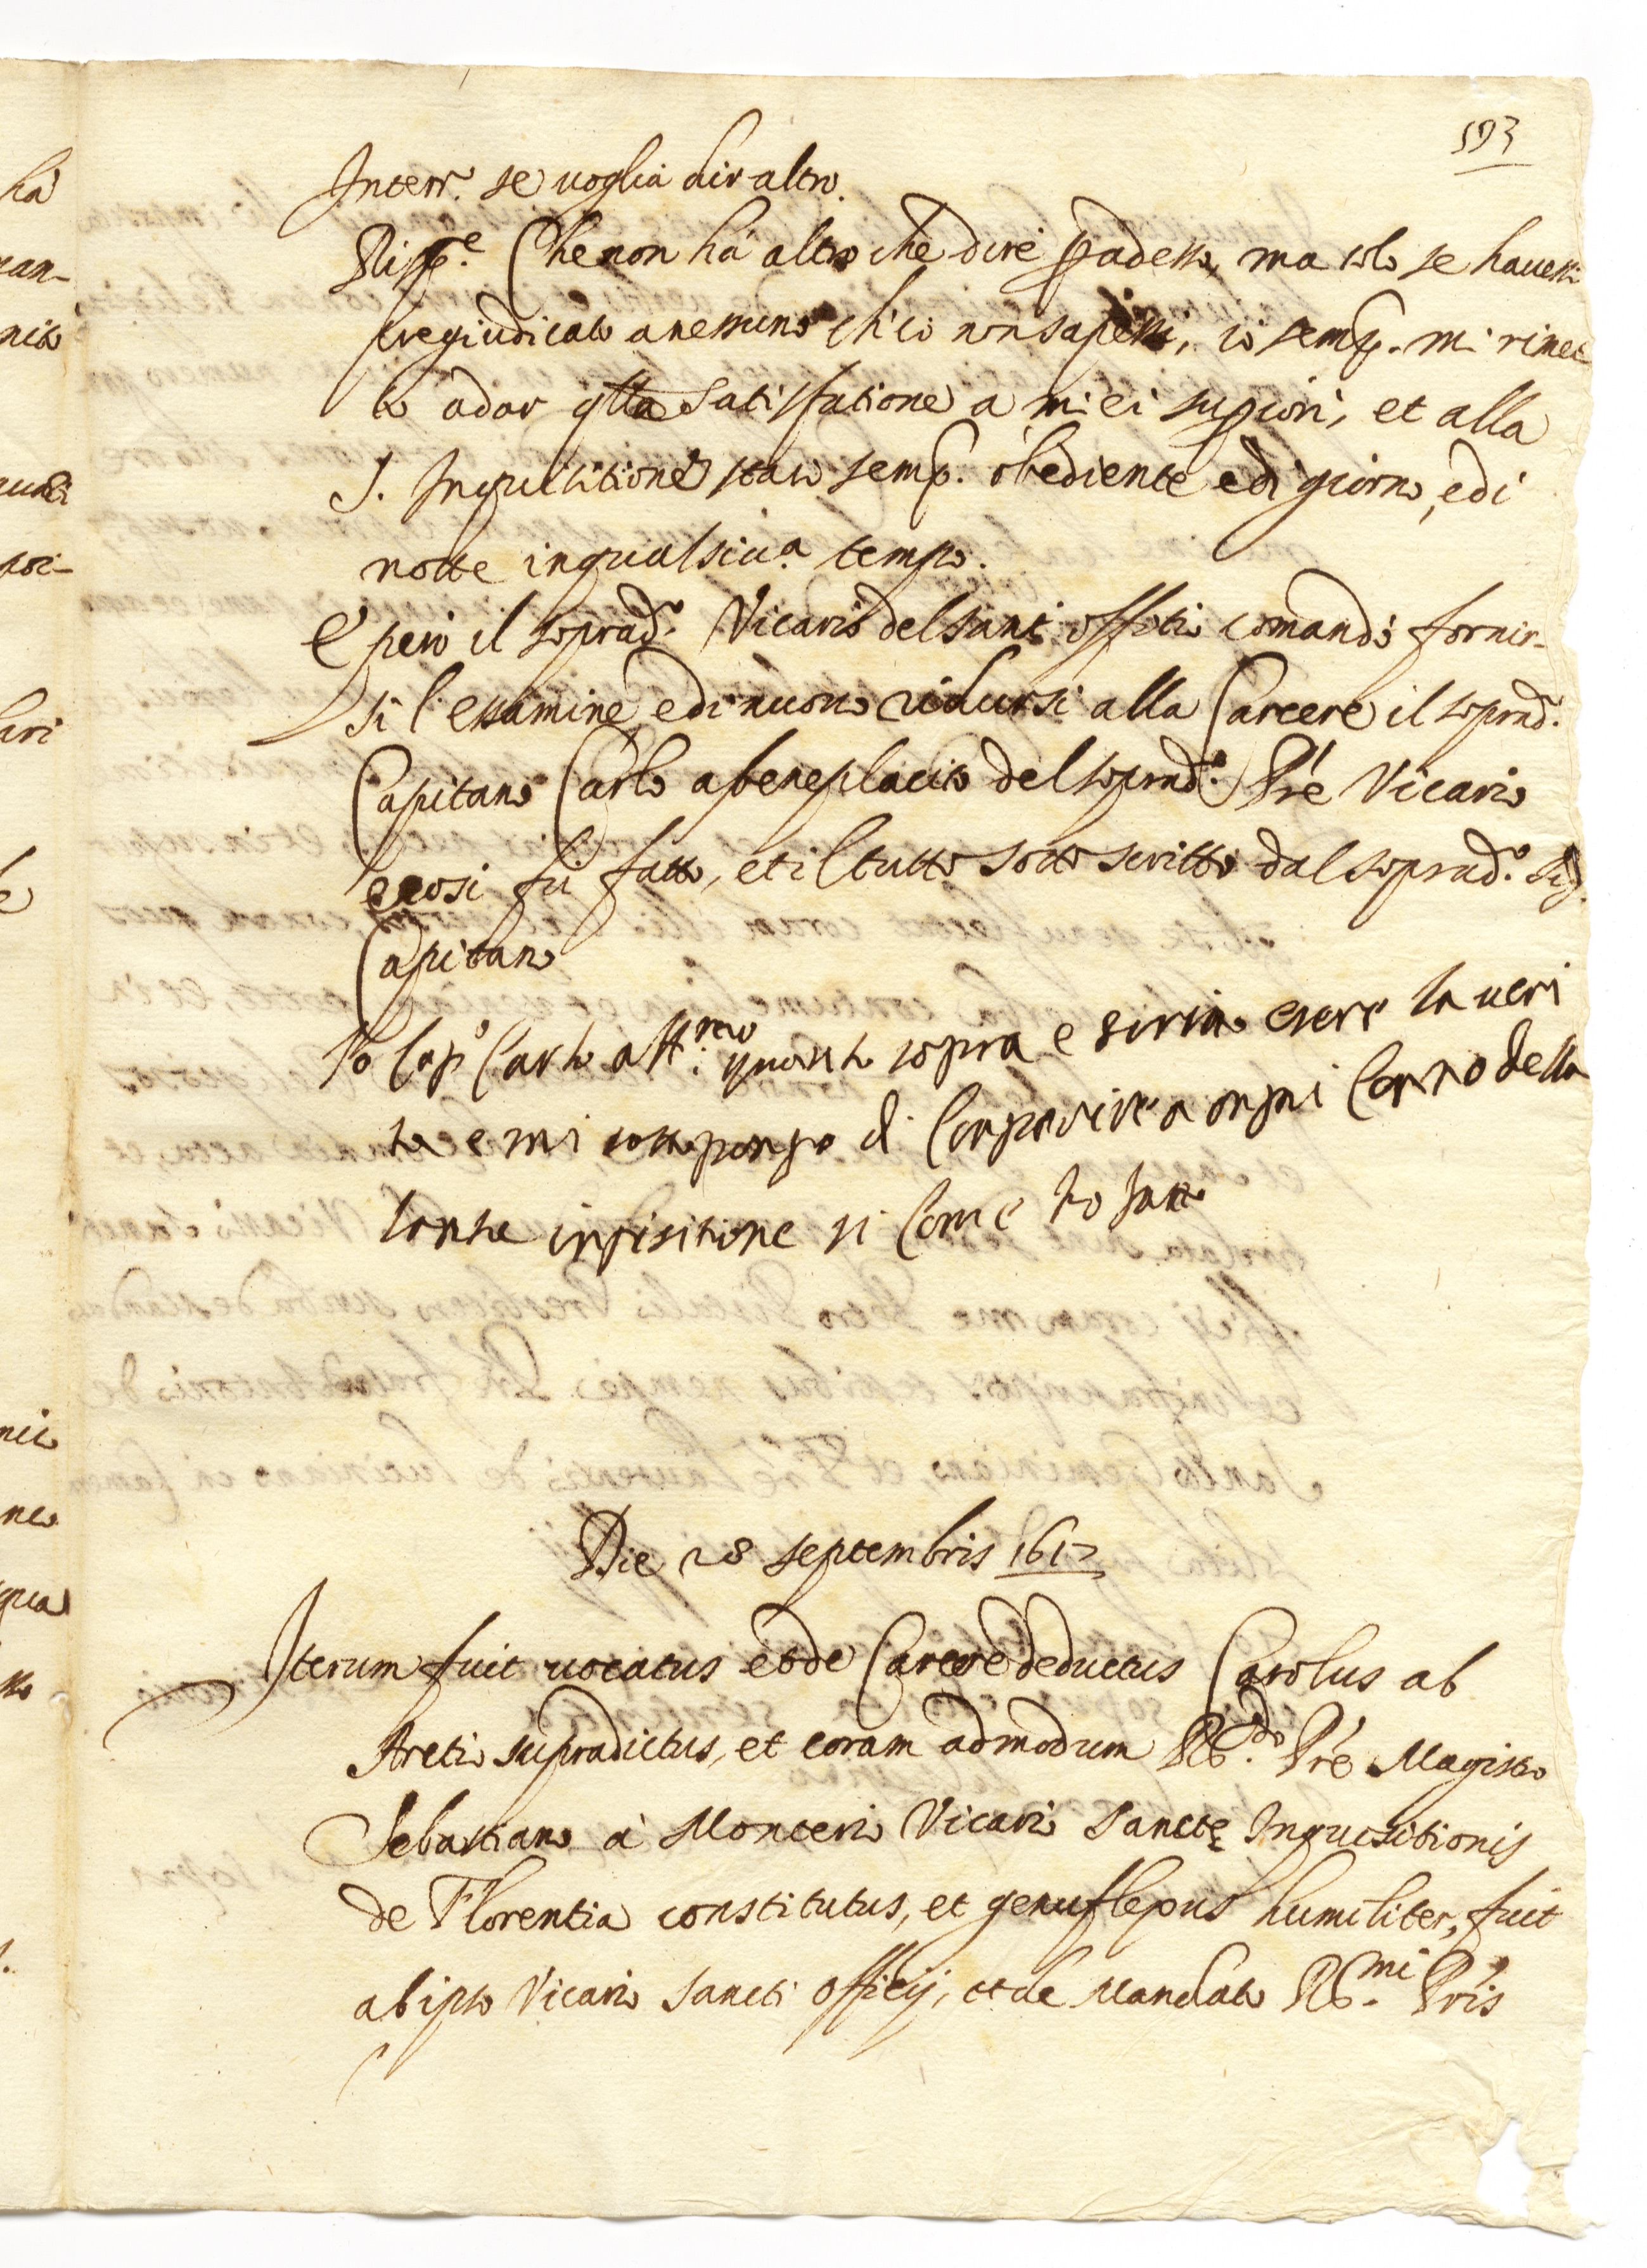 593
Interr.º se voglia dir altro.
Risp.e Che non hà altro che dire p adesso, ma solo se havessi
pregiudicato a nessuno ch'io non sapessi, io semp. mi rimet
to à dar q.lla satisfatione a miei sup.iori, et alla
S. Inquisitione staro semp. obediente e di giorno, e di
notte in qualsiv.a tempo.
E però il soprad.o Vicario del santo offitio comandò fornir-
si l'essamine, e di nuovo ridursi alla Carcere il soprad.o
Capitano Carlo a beneplacito del soprad.o Prè Vicario
e cosi fù fatto, et il tutto sotto scritto dal soprad.o Sig.
Capitano
Io Cap.o Carlo aff.mo quanto sopra e sirivo esere la veri
ta e mi sottopongo di Conparire a ongni Cenno della
santa inqisitione si Come ho fatto
Die 28 septembris 1617
Iterum fuit vocatus et de Carcere deductus Carolus ab
Aretio supradictus, et coram admodum R.do Prè Magistro
Sebastiano à Monterio Vicario Sanctę Inquisitionis
de Florentia constitutus, et genuflexus humiliter, fuit
ab ipso Vicario Sancti Officij, et de Mandato R.mi Pris